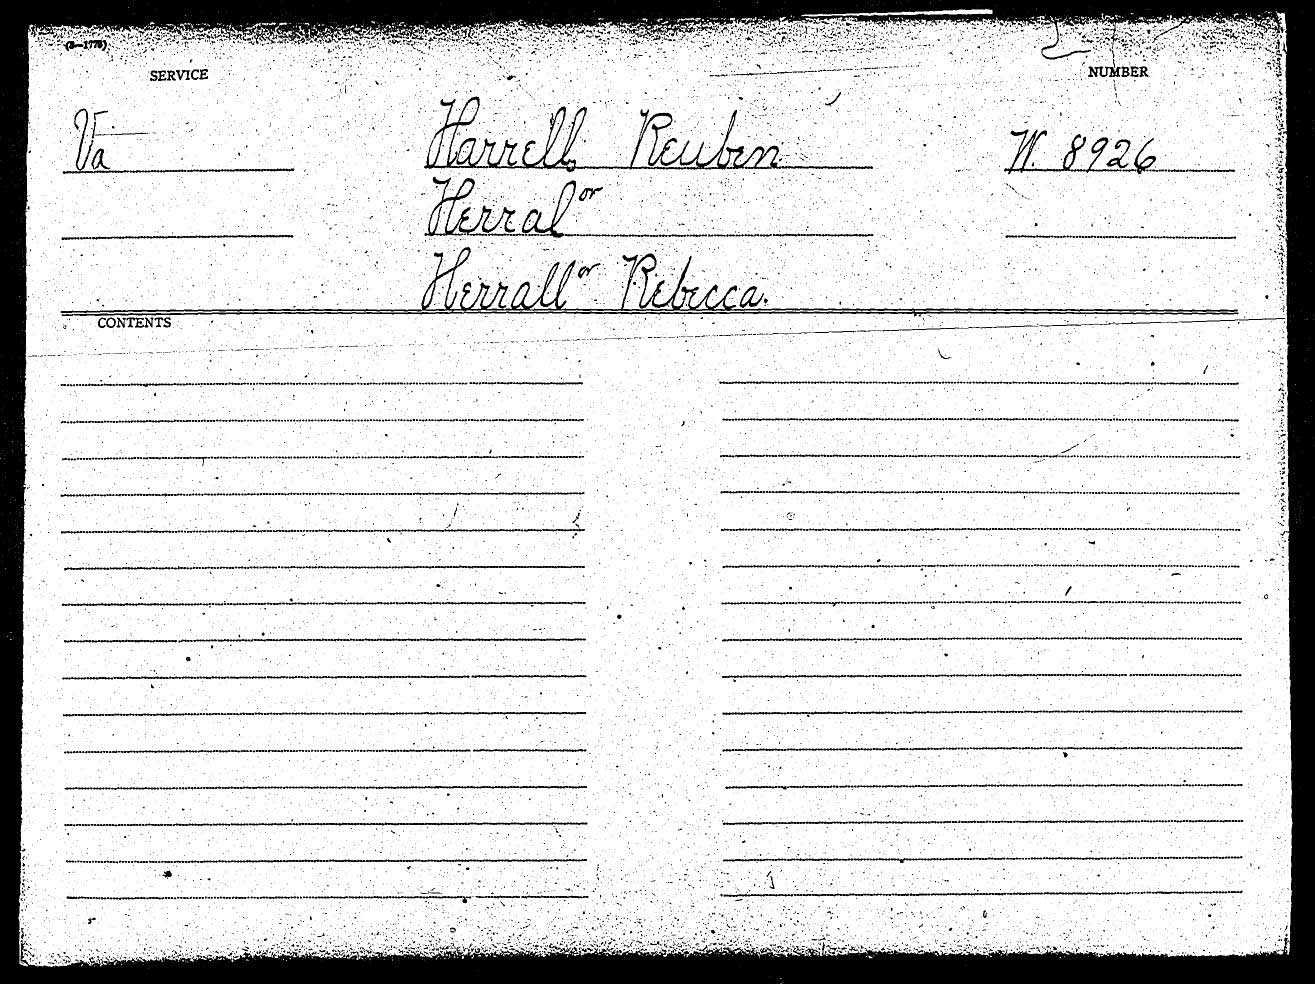 (3—1776)
SERVICE
NUMBER
Va
Harrell, Reuben
W. 8926
Herral or
Herrall or Rebecca.
CONTENTS